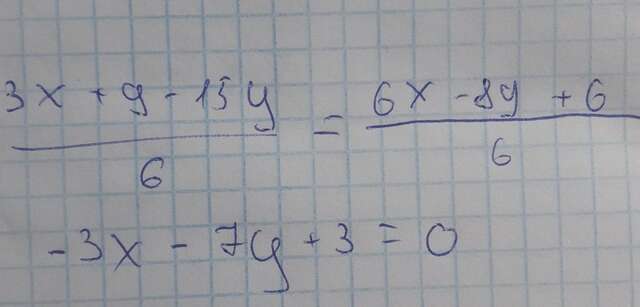 3x + 9 - 15y / 6 = 6x - 8y + 6 / 6
-3x - 7y + 3 = 0